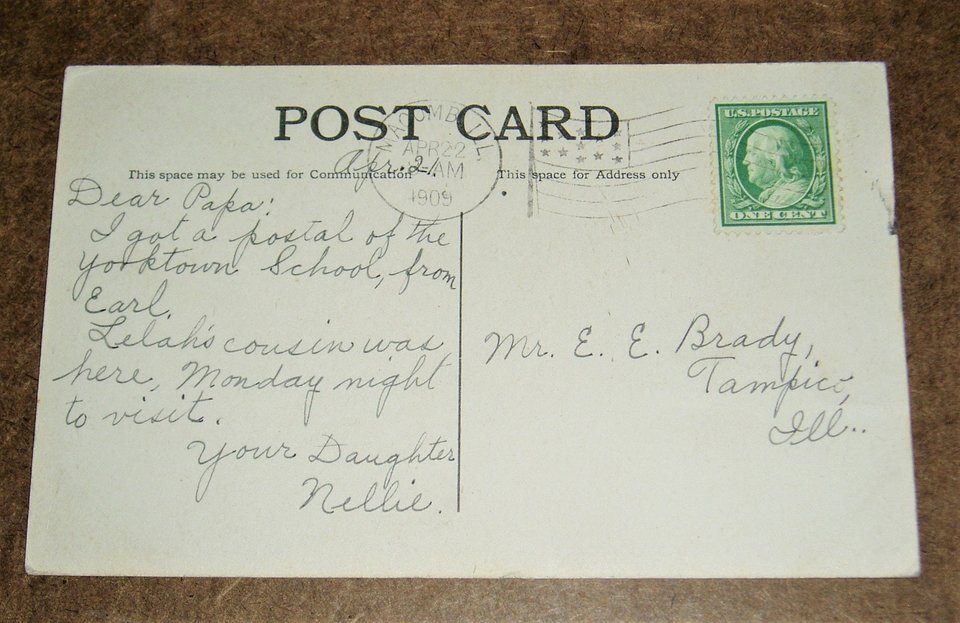 POST CARD
MACOMB, ILL.
APR 22
-AM
1909
U.S. POSTAGE
ONE CENT
This space may be used for Communication
This space for Address only
Apr. 21
Dear Papa:
I got a postal of the
Yorktown School, from
Earl.
Lelah's cousin was
here, Monday night
to visit.
Your Daughter
Nellie.
Mr. E. E. Brady,
Tampico,
Ill..